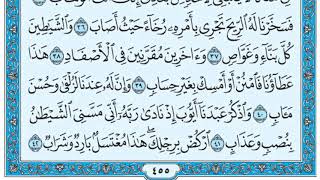 فَسَخَّرْنَا لَهُ ٱلرِّيحَ تَجْرِى بِأَمْرِهِۦ رُخَآءً حَيْثُ أَصَابَ ٣٦ وَٱلشَّيَٰطِينَ
كُلَّ بَنَّآءٍ وَغَوَّاصٍ ٣٧ وَءَاخَرِينَ مُقَرَّنِينَ فِى ٱلْأَصْفَادِ ٣٨ هَٰذَا
عَطَآؤُنَا فَٱمْنُنْ أَوْ أَمْسِكْ بِغَيْرِ حِسَابٍ ٣٩ وَإِنَّ لَهُۥ عِندَنَا لَزُلْفَىٰ وَحُسْنَ
مَـَٔابٍ ٤٠ وَٱذْكُرْ عَبْدَنَآ أَيُّوبَ إِذْ نَادَىٰ رَبَّهُۥٓ أَنِّى مَسَّنِىَ ٱلشَّيْطَٰنُ
بِنُصْبٍ وَعَذَابٍ ٤١ ٱرْكُضْ بِرِجْلِكَ هَٰذَا مُغْتَسَلٌۢ بَارِدٌ وَشَرَابٌ ٤٢
٤٥٥